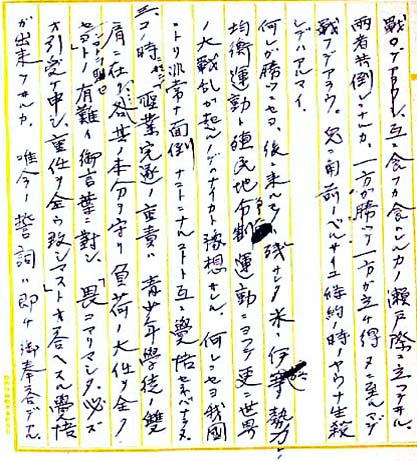 戦ニテアラウ、互ニ食フカ食ハレルカノ瀬戸際ニ立ツテ居ル。
両者共倒レトナルカ、一方ガ勝ツテ一方ガ立チ得ヌニ至ルマデ
戦フデアラウ。先ニ面前ノベルサイユ條約ノ時ノヤウナ生殺
シデハアルマイ。
何レガ勝ツニセヨ、後ニ来ルモノハ残サレタ米、伊 勢力ノ
均衡運動ト殖民地分割運動ニヨツテ更ニ世界
ノ大戦乱ガ起ルノデハナイカト豫想サレル。何レニセヨ我國
ハ非常ナ面倒ナコトニナルコトト互ニ覺悟セネバナラヌ
三、コノ時 聖業完遂ノ重責ハ 青少年學徒ノ雙
肩ニ在リ 各其ノ本分ヲ守リ 負荷ノ大任ヲ全ク
セヨトノ有難イ御言葉ニ對シ、「畏コマリマシタ。必ズ
オ引受ケ申シ、重任ヲ全ウ致シマス」トオ答ヘスル覺悟
ガ出来テオルカ。唯今ノ誓詞ハ即チ御奉答デアル。